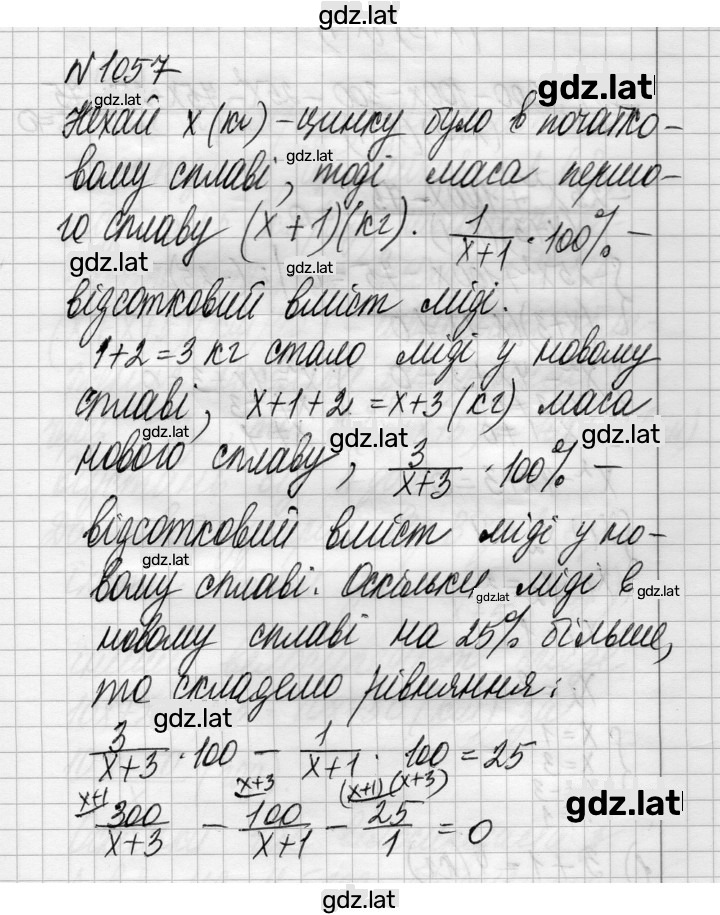 gdz.lat
№1057
gdz.lat
gdz.lat
Нехай x (кг) - цинку було в початко-
gdz.lat
вому сплаві, тоді маса першо-
го сплаву (x+1)(кг). 1/(x+1) · 100% -
gdz.lat
gdz.lat
відсотковий вміст міді.
1+2=3 кг стало міді у новому
сплаві, x+1+2 = x+3 (кг) маса
gdz.lat
gdz.lat
gdz.lat
нового сплаву, 3/(x+3) · 100% -
відсотковий вміст міді у но-
gdz.lat
вому сплаві. Оскільки міді в
gdz.lat
gdz.lat
новому сплаві на 25% більше,
то складемо рівняння:
gdz.lat
3/(x+3) · 100 - 1/(x+1) · 100 = 25
x+1 x+3 (x+1)(x+3)
gdz.lat
300/(x+3) - 100/(x+1) - 25/1 = 0
gdz.lat